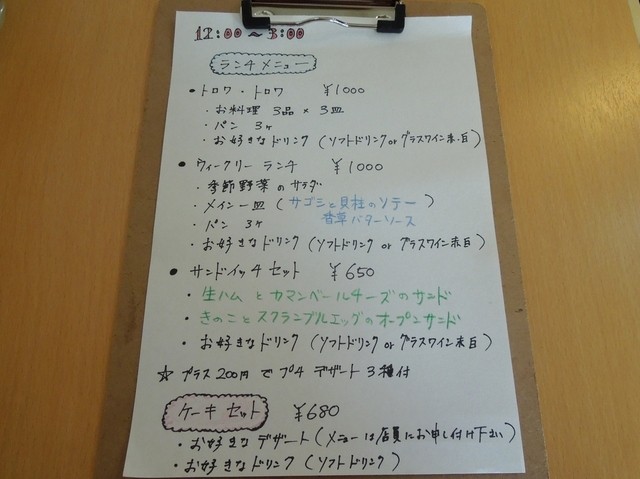 12:00～3:00
ランチメニュー
• トロワ・トロワ ¥1000
・お料理 3品 × 3皿
・パン 3ヶ
・お好きなドリンク (ソフトドリンク or グラスワイン赤・白)
• ウィークリー ランチ ¥1000
・季節野菜のサラダ
・メイン一皿 (サゴシと貝柱のソテー)
香草バターソース
・パン 3ヶ
・お好きなドリンク (ソフトドリンク or グラスワイン赤白)
• サンドイッチセット ¥650
・生ハムとカマンベールチーズのサンド
・きのことスクランブルエッグのオープンサンド
・お好きなドリンク (ソフトドリンク or グラスワイン赤白)
☆ プラス200円でプチデザート3種付
ケーキセット ¥680
・お好きなデザート (メニューは店員にお申し付け下さい)
・お好きなドリンク (ソフトドリンク)